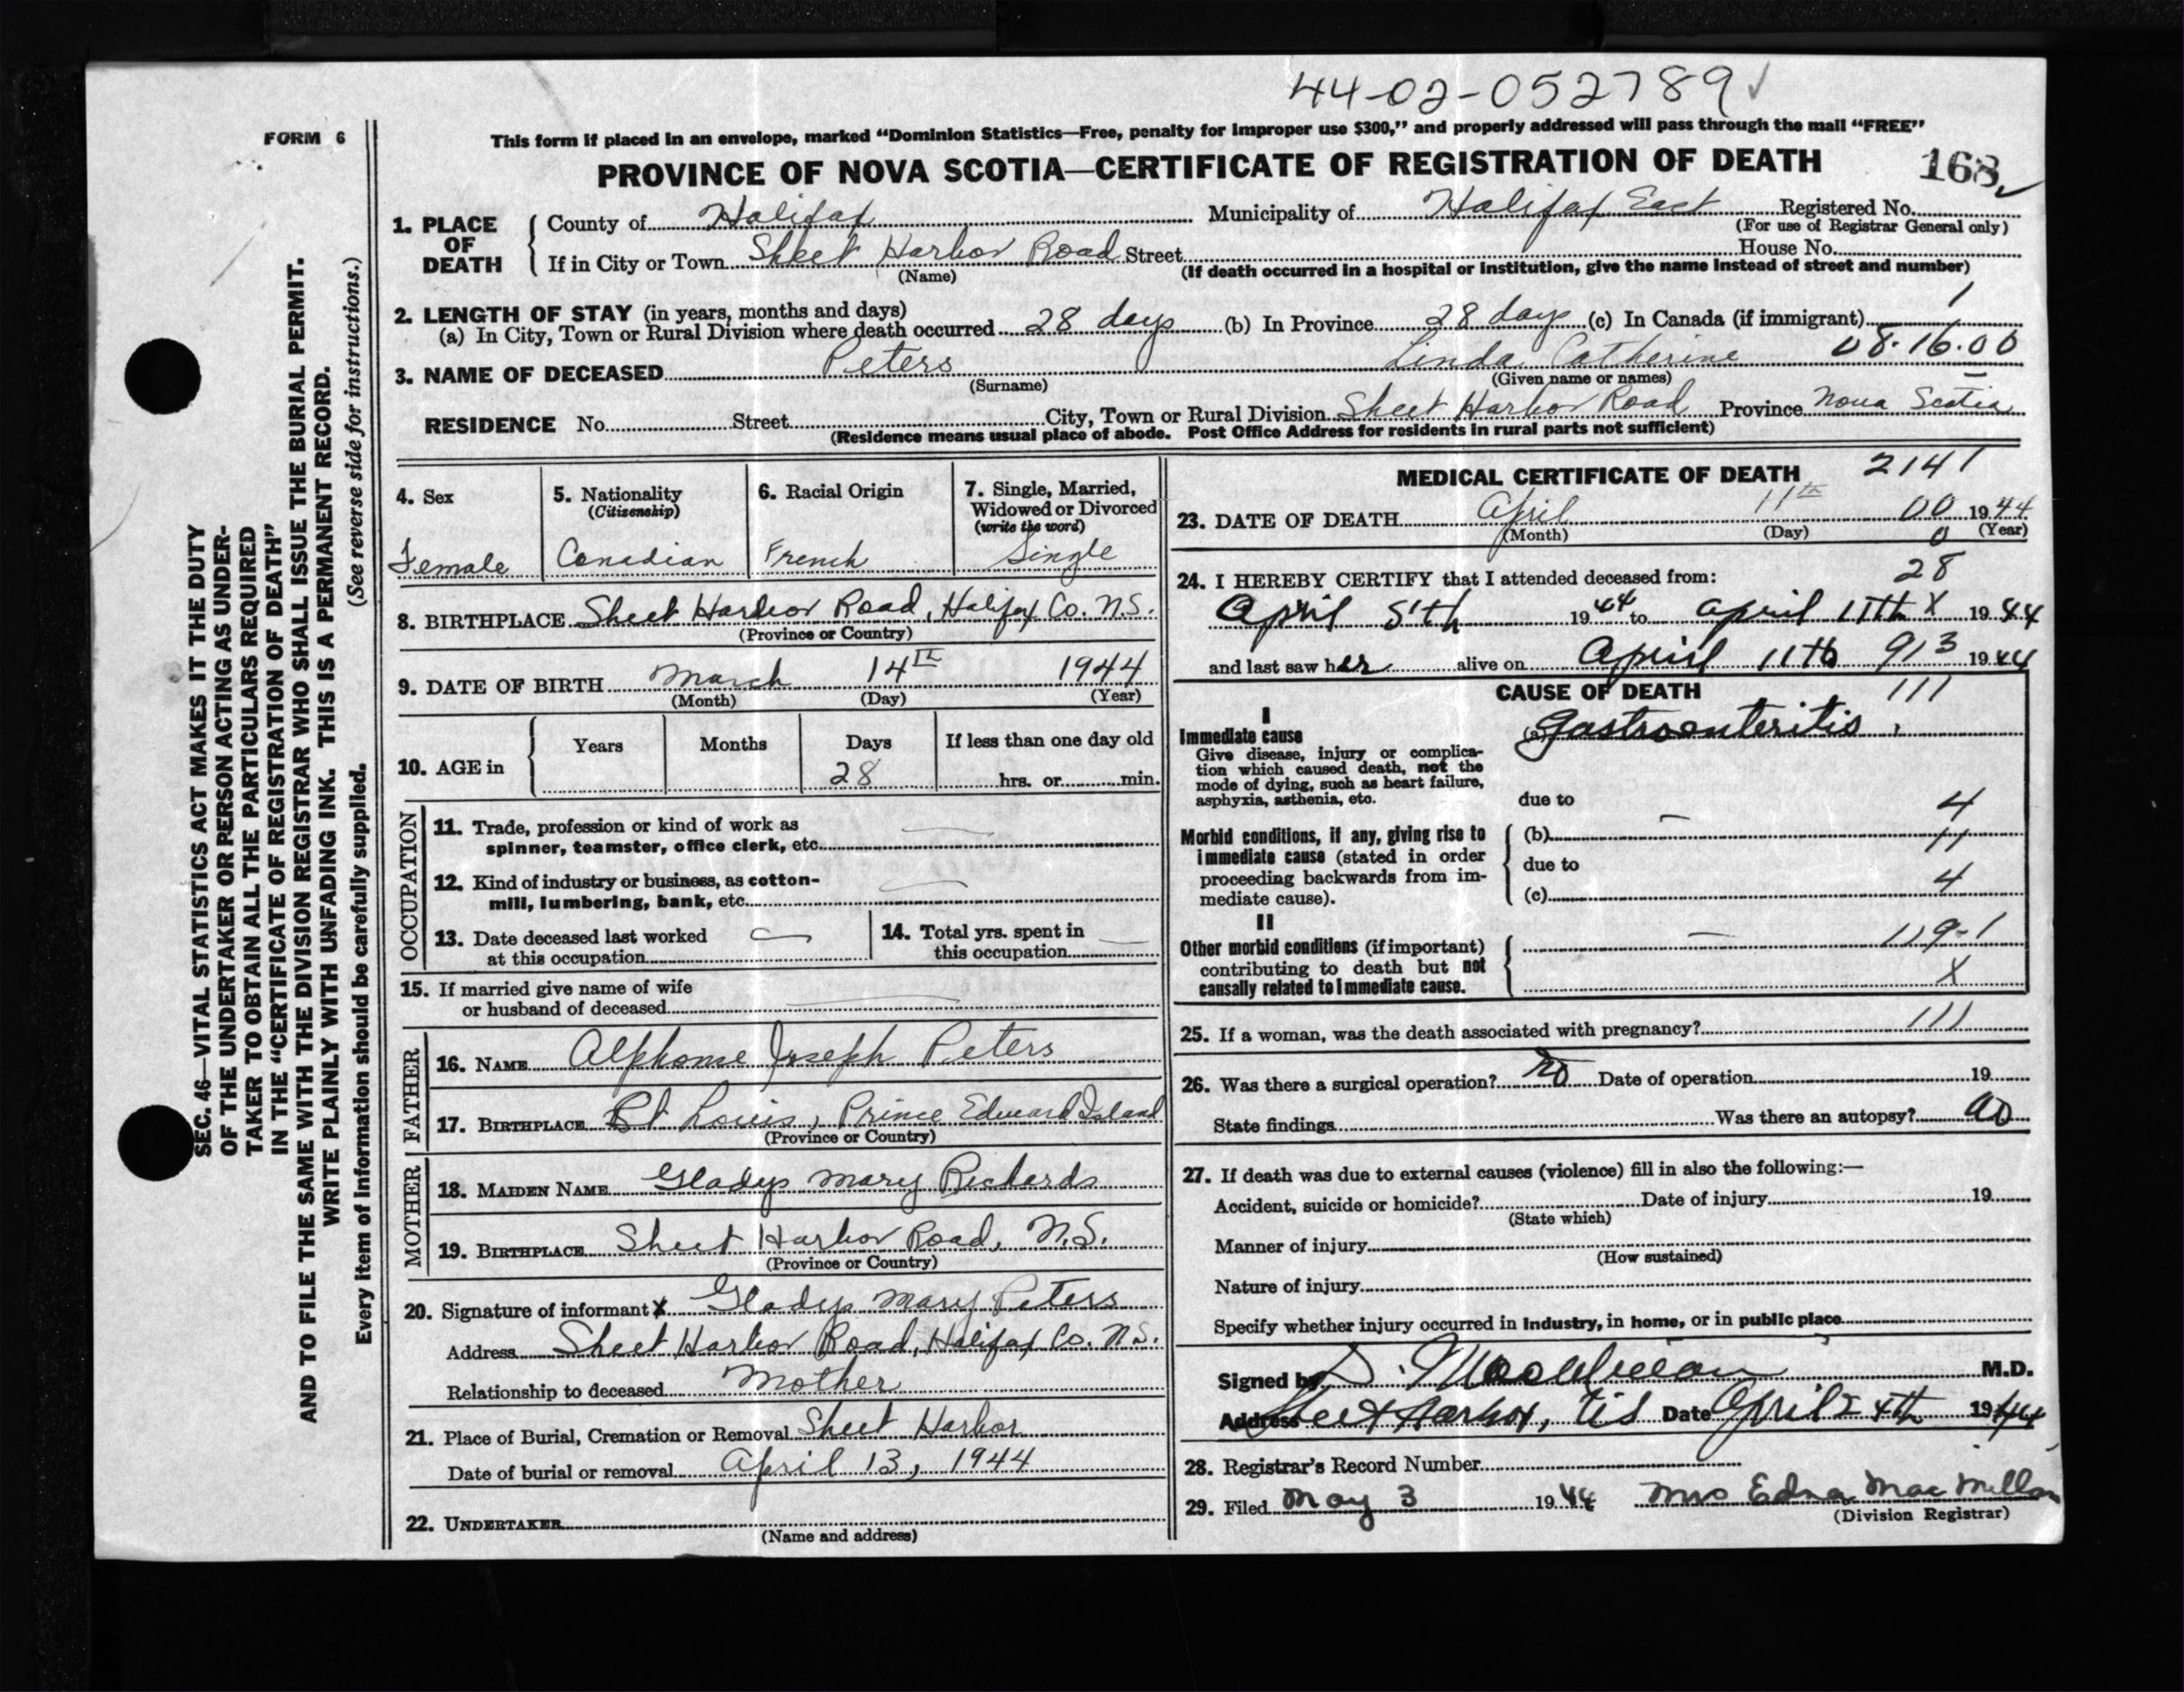 44-02-052789 ✓
FORM 6
This form if placed in an envelope, marked “Dominion Statistics—Free, penalty for improper use $300,” and properly addressed will pass through the mail “FREE”
PROVINCE OF NOVA SCOTIA—CERTIFICATE OF REGISTRATION OF DEATH 168 ✓
1. PLACE OF DEATH
County of Halifax Municipality of Halifax East Registered No.
(For use of Registrar General only)
If in City or Town Sheet Harbor Road Street House No.
(Name) (If death occurred in a hospital or institution, give the name instead of street and number)
2. LENGTH OF STAY (in years, months and days) 1
(a) In City, Town or Rural Division where death occurred 28 days (b) In Province 28 days (c) In Canada (if immigrant)
08.16.00
3. NAME OF DECEASED Peters Linda Catherine
(Surname) (Given name or names)
RESIDENCE No. Street City, Town or Rural Division Sheet Harbor Road Province Nova Scotia
(Residence means usual place of abode. Post Office Address for residents in rural parts not sufficient)
4. Sex
Female
5. Nationality
(Citizenship)
Canadian
6. Racial Origin
French
7. Single, Married,
Widowed or Divorced
(write the word)
Single
8. BIRTHPLACE Sheet Harbor Road, Halifax Co. N.S.
(Province or Country)
9. DATE OF BIRTH March 14th 1944
(Month) (Day) (Year)
10. AGE in
Years Months Days If less than one day old
28 hrs. or min.
OCCUPATION
11. Trade, profession or kind of work as
spinner, teamster, office clerk, etc. —
12. Kind of industry or business, as cotton-
mill, lumbering, bank, etc. —
13. Date deceased last worked
at this occupation —
14. Total yrs. spent in
this occupation —
15. If married give name of wife
or husband of deceased —
FATHER
16. NAME Alphonse Joseph Peters
17. BIRTHPLACE St Louis, Prince Edward Island
(Province or Country)
MOTHER
18. MAIDEN NAME Gladys Mary Richards
19. BIRTHPLACE Sheet Harbor Road, N.S.
(Province or Country)
20. Signature of informant X Gladys Mary Peters
Address Sheet Harbor Road, Halifax Co. N.S.
Relationship to deceased Mother
21. Place of Burial, Cremation or Removal Sheet Harbor
Date of burial or removal April 13, 1944
22. UNDERTAKER
(Name and address)
MEDICAL CERTIFICATE OF DEATH 2141
23. DATE OF DEATH April 11th 00 1944
(Month) (Day) 0 (Year)
24. I HEREBY CERTIFY that I attended deceased from: 28
April 5th 1944 to April 11th X 1944
and last saw her alive on April 11th 913 1944
CAUSE OF DEATH 111
I
Immediate cause
Give disease, injury or complica-
tion which caused death, not the
mode of dying, such as heart failure,
asphyxia, asthenia, etc.
(a) Gastroenteritis
due to 4
Morbid conditions, if any, giving rise to
immediate cause (stated in order
proceeding backwards from im-
mediate cause).
(b) — 11
due to
(c) 4
II
Other morbid conditions (if important)
contributing to death but not
causally related to immediate cause.
— 119-1
X
25. If a woman, was the death associated with pregnancy? 111
26. Was there a surgical operation? no Date of operation 19
State findings Was there an autopsy? no
27. If death was due to external causes (violence) fill in also the following:—
Accident, suicide or homicide? Date of injury 19
(State which)
Manner of injury
(How sustained)
Nature of injury
Specify whether injury occurred in industry, in home, or in public place
Signed by D. M.D.
Address Sheet Harbor, Date April 24th 1944
28. Registrar's Record Number
29. Filed May 3 1944 Mrs Edna MacMillan
(Division Registrar)
SEC. 46—VITAL STATISTICS ACT MAKES IT THE DUTY
OF THE UNDERTAKER OR PERSON ACTING AS UNDER-
TAKER TO OBTAIN ALL THE PARTICULARS REQUIRED
IN THE “CERTIFICATE OF REGISTRATION OF DEATH”
AND TO FILE THE SAME WITH THE DIVISION REGISTRAR WHO SHALL ISSUE THE BURIAL PERMIT.
WRITE PLAINLY WITH UNFADING INK. THIS IS A PERMANENT RECORD.
Every item of information should be carefully supplied. (See reverse side for instructions.)